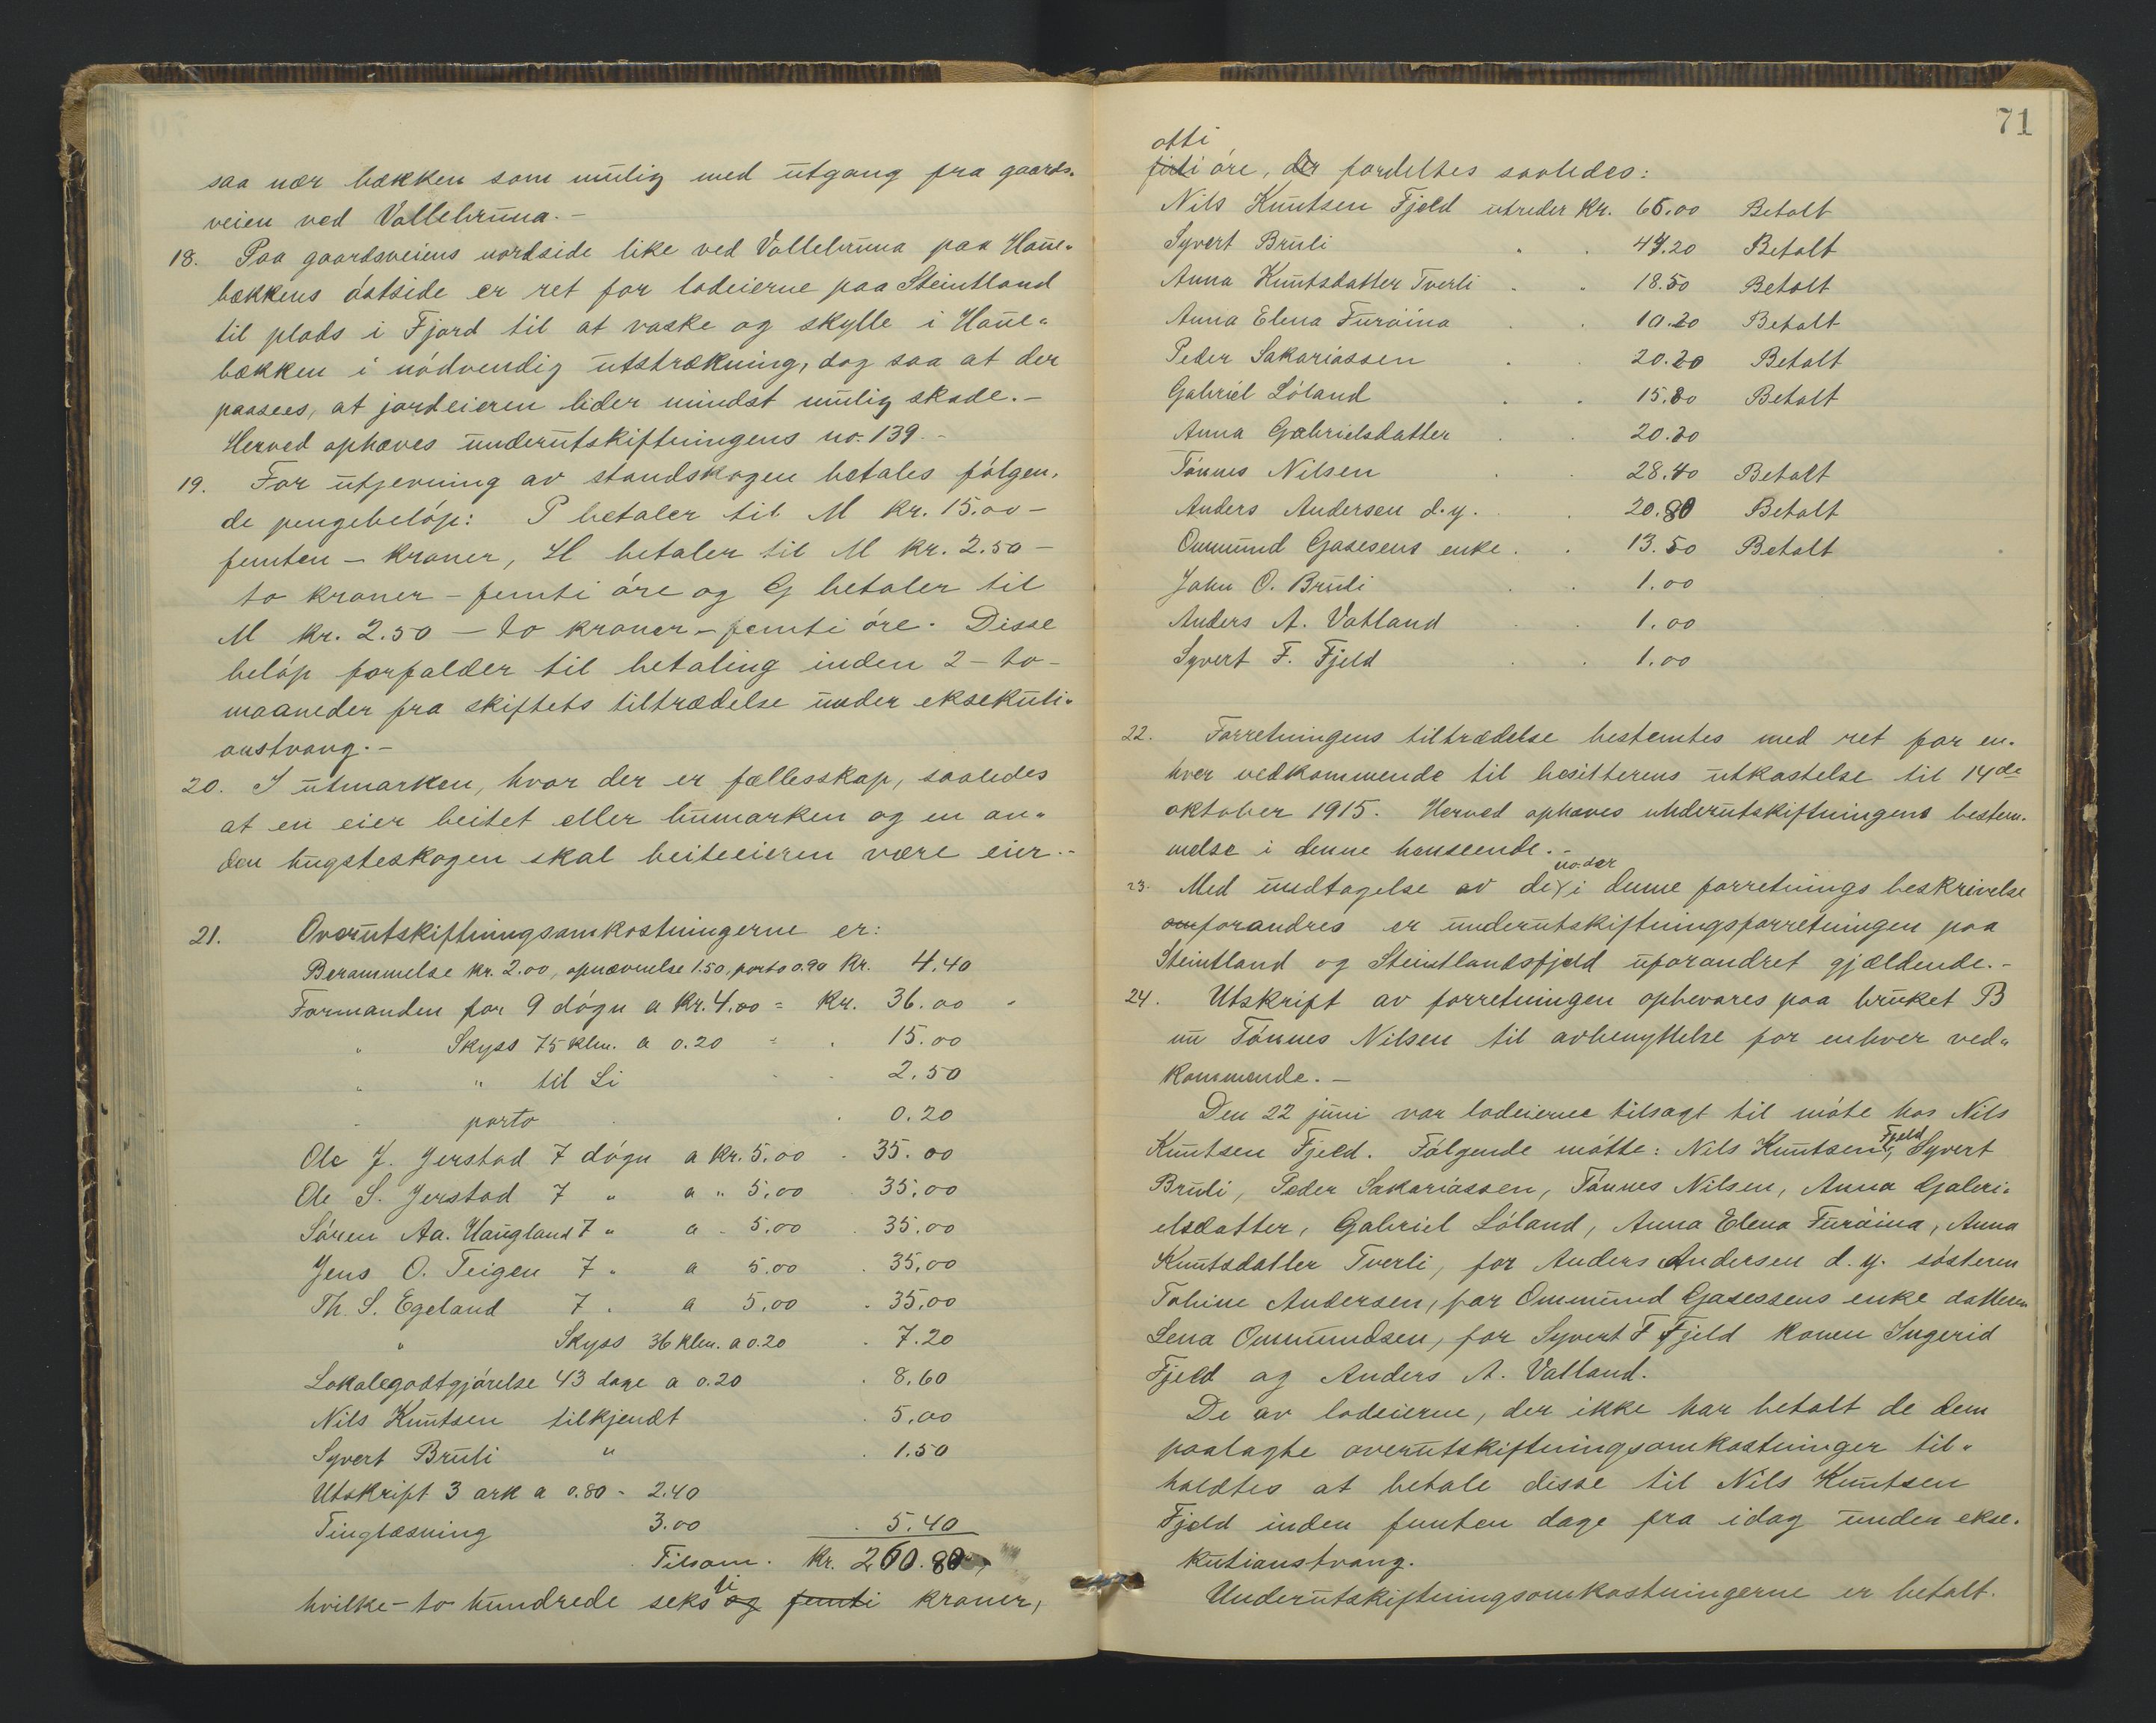 saa nær bækken som mulig med utgang fra gaards-
veien ved Vollebruna.-
18. Paa gaardsveiens nordside like ved Vollebruna paa Haue-
bækkens østside er ret for lodeierne paa Steintland
til plads i Fjord til at vaske og skylle i Haue-
bækken i nødvendig utstrækning, dog saa at der
paasees, at jordeieren lider mindst mulig skade.-
Herved ophæves underutskiftningens no. 139.-
19. For utjevning av standskogen betales følgen-
de pengebeløp: P betaler til M kr. 15.00 -
femten - kroner, H betaler til M kr. 2.50 -
to kroner - femti øre og G betaler til
M kr. 2.50 - to kroner - femti øre. Disse
beløp forfalder til betaling inden 2 - to -
maaneder fra skiftets tiltrædelse under eksekuti-
onstvang.-
20. I utmarken, hvor der er fællesskap, saaledes
at en eier beitet eller bumarken og en an-
den hugsteskogen skal beiteeieren være eier.-
21. Overutskiftningsomkostningerne er:
Berammelse kr. 2.00, opnævnelse 1.50, porto 0.90 Kr. 4.40
Formanden for 9 døgn a Kr. 4.00 = Kr. 36.00
" Skyss 75 klm. a 0.20 = . 15.00
" " til Li . . 2.50
. porto . 0.20
Ole J. Jerstad 7 døgn a kr. 5.00 . 35.00
Ole S. Jerstad 7 " a " 5.00 . 35.00
Søren Aa. Haugland 7 " a . 5.00 . 35.00
Jens O. Teigen 7 " a 5.00 . 35.00
Th. S. Egeland 7 . a 5.00 . 35.00
" Skyss 36 klm. a 0.20 . 7.20
Lokalegodtgjørelse 43 dage a 0.20 . 8.60
Nils Knutsen tilkjendt . 5.00
Syvert Bruli " . 1.50
Utskrift 3 ark a 0.80 - 2.40
Tinglæsning 3.00 . 5.40
Tilsam. Kr. 260.80
hvilke - to hundrede seksti og femti kroner,
71
otti
firti øre, der fordeltes saaledes:
Nils Knutsen Fjeld utreder Kr. 65.00 Betalt
Syvert Bruli . . 47.20 Betalt
Anna Knutsdatter Tverli . " 18.50 Betalt
Anna Elena Furøina . . 10.20 Betalt
Peder Sakariassen . . 20.20 Betalt
Gabriel Løland . . 15.80 Betalt
Anna Gabrielsdatter . . 20.20
Tønnes Nilsen . . 28.40 Betalt
Anders Andersen d.y. . . 20.80 Betalt
Ommund Gasesens enke . . 13.50 Betalt
John O. Bruli . . 1.00
Anders A. Vatland . . 1.00
Syvert F. Fjeld . . 1.00
22. Forretningens tiltrædelse bestemtes med ret for en-
hver vedkommende til besitterens utkastelse til 14de
oktober 1915. Herved ophæves underutskiftningens bestem-
melse i denne henseende.-
no. der
23. Med undtagelse av de i denne forretnings beskrivelse
omforandres er underutskiftningsforretningen paa
Steintland og Steintlandsfjeld uforandret gjældende.-
24. Utskrift av forretningen opbevares paa bruket B
nu Tønnes Nilsen til avbenyttelse for enhver ved-
kommende.-
Den 22 juni var lodeierne tilsagt til møte hos Nils
Knutsen Fjeld. Følgende møtte: Nils Knutsen Fjeld, Syvert
Bruli, Peder Sakariassen, Tønnes Nilsen, Anna Gabri-
elsdatter, Gabriel Løland, Anna Elena Furøina, Anna
Knutsdatter Tverli, for Anders Andersen d.y. søsteren
Tobine Andersen, for Ommund Gasessens enke datteren
Lena Ommundsen, for Syvert F Fjeld konen Ingerid
Fjeld og Anders A. Vatland.
De av lodeierne, der ikke har betalt de dem
paalagte overutskiftningsomkostninger til-
holdtes at betale disse til Nils Knutsen
Fjeld inden femten dage fra idag under ekse-
kutionstvang.
Underutskiftningsomkostningerne er betalt.